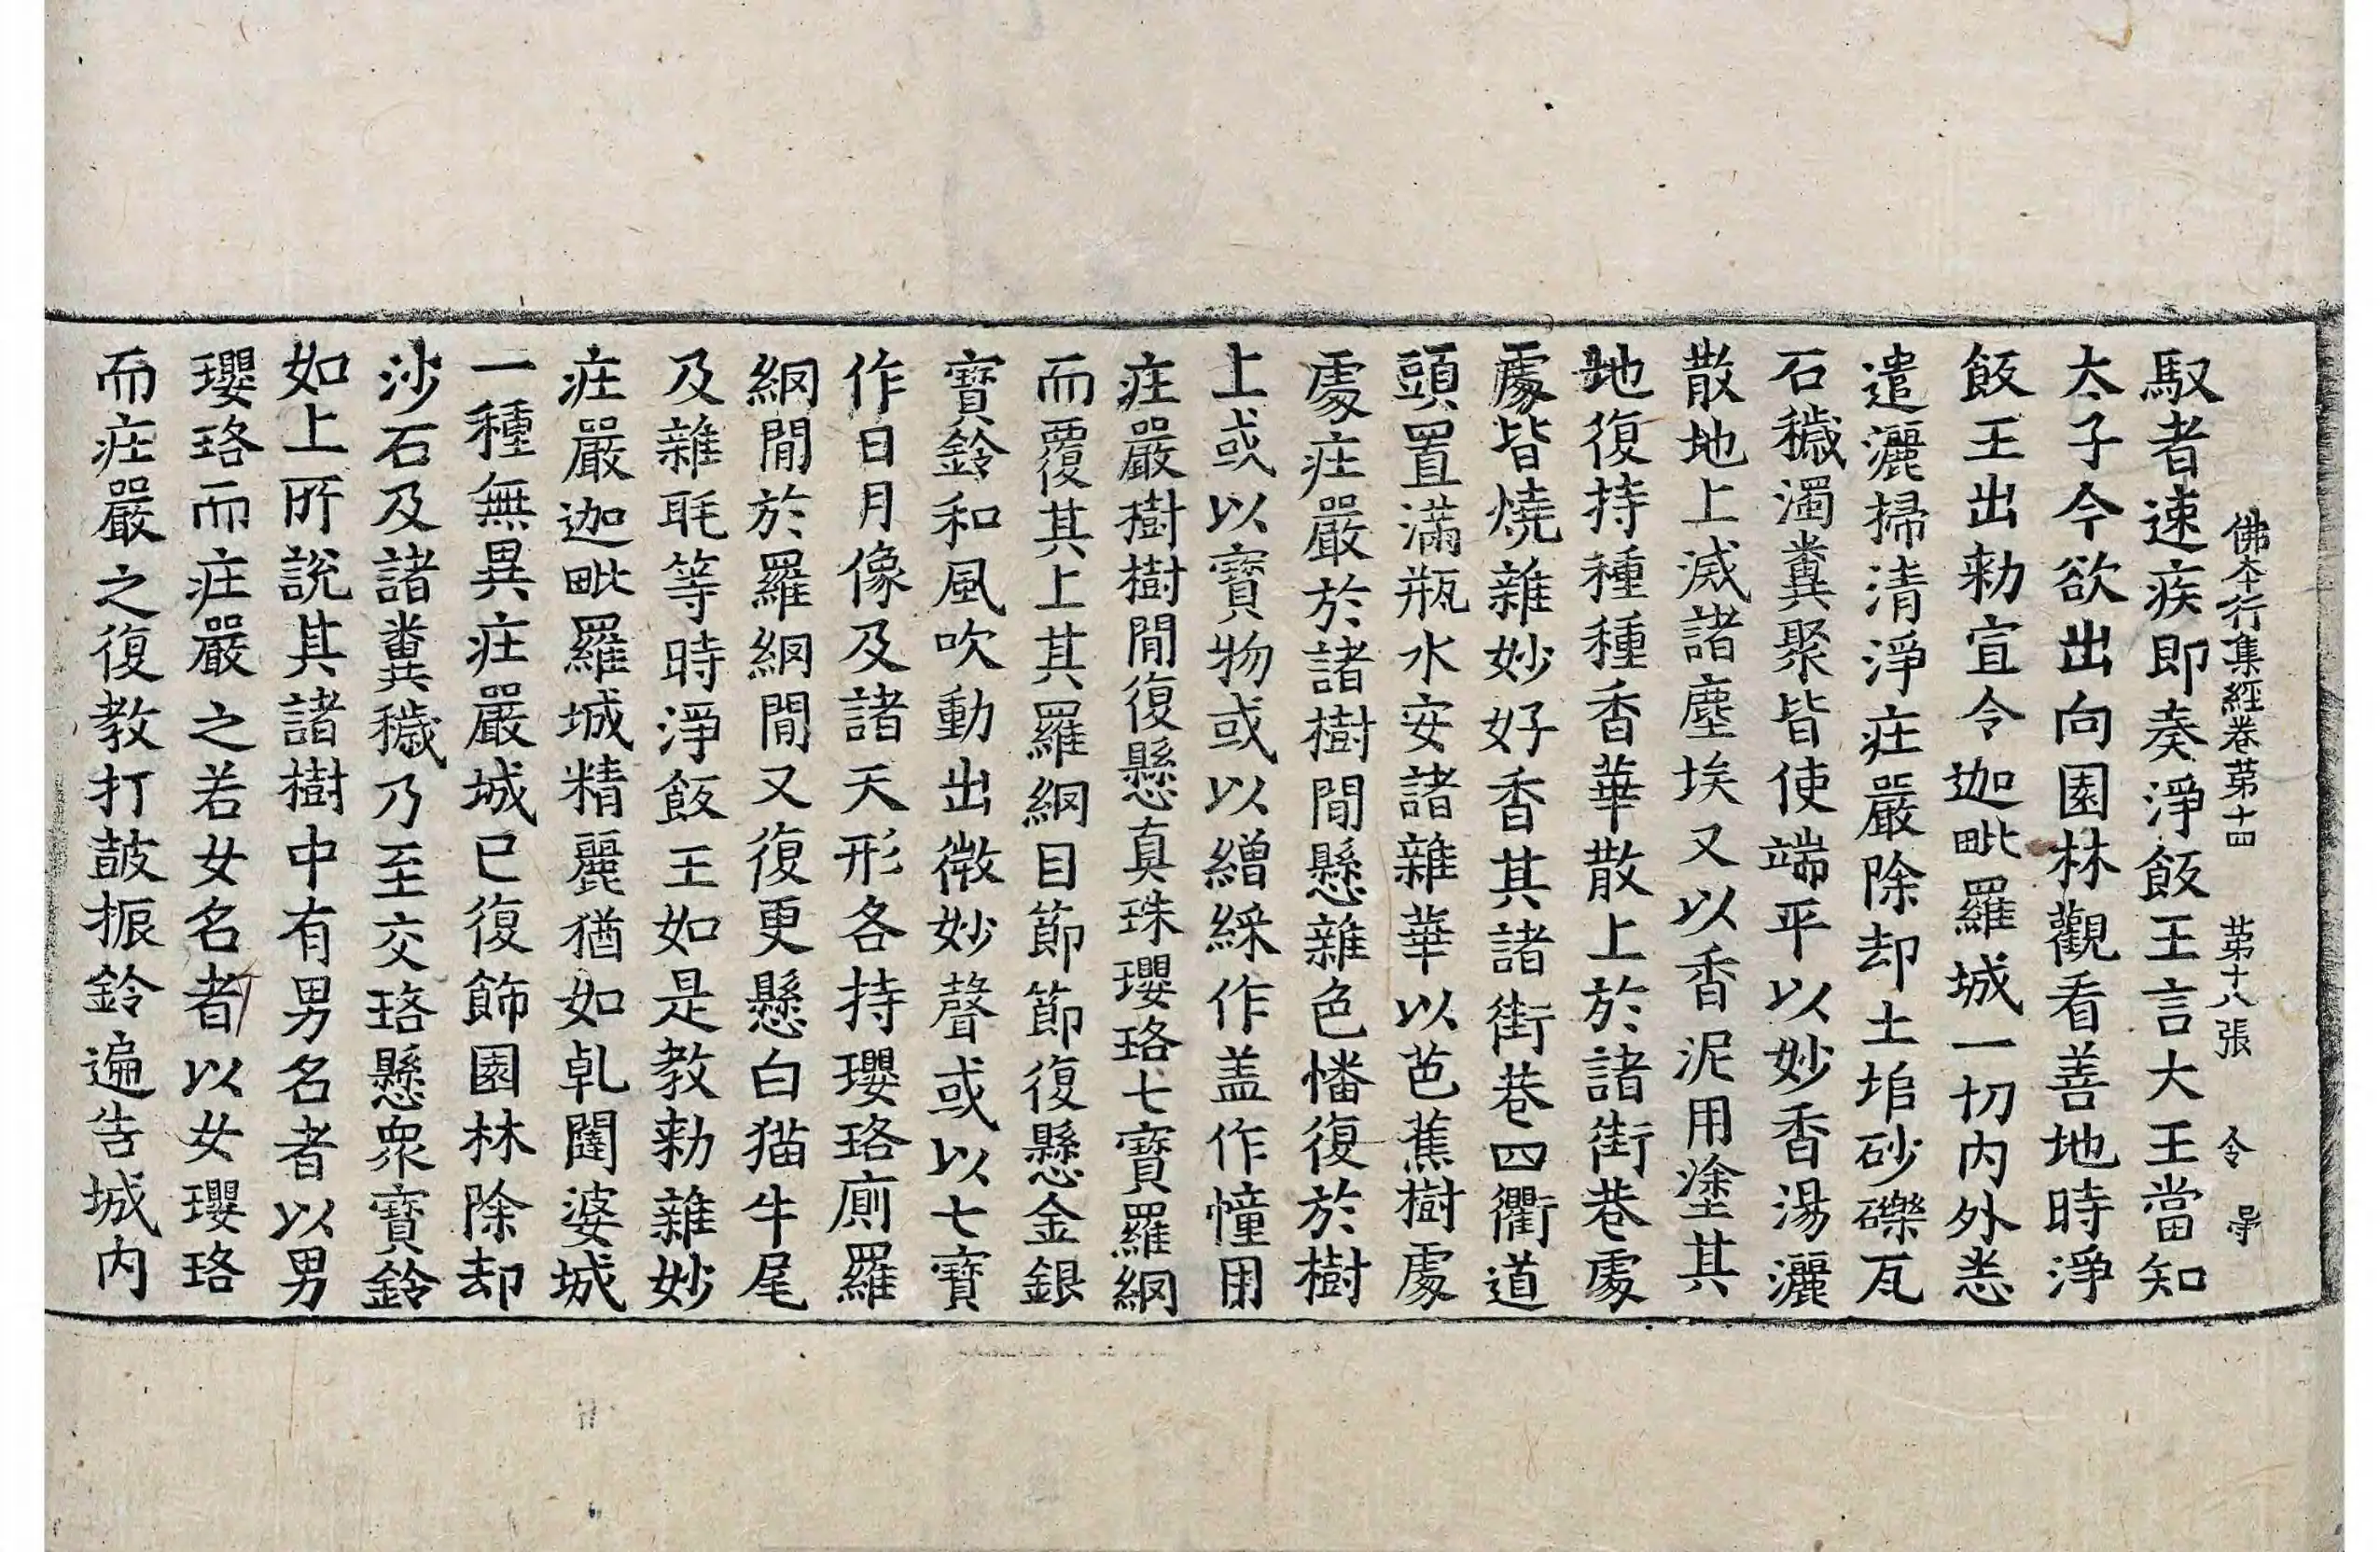 佛本行集經卷苐十四　苐十八張　令
馭者速疾即奏淨飯王言大王當知
太子今欲出向園林觀看善地時淨
飯王出勑宣令迦毗羅城一切内外悉
遣灑掃清淨庄嚴除却土堆砂礫瓦
石穢濁糞聚皆使端平以妙香湯灑
散地上滅諸塵埃又以香泥用塗其
地復持種種香華散上於諸街巷處
處皆燒雜妙好香其諸街巷四衢道
頭置滿瓶水安諸雜華以芭蕉樹處
處庄嚴於諸樹間懸雜色幡復於樹
上或以寶物或以繒綵作盖作幢用
庄嚴樹樹間復懸真珠瓔珞七寶羅網
而覆其上其羅網目節節復懸金銀
寶鈴和風吹動出微妙聲或以七寶
作日月像及諸天形各持瓔珞廁羅
網間於羅網間又復更懸白猫牛尾
及雜毦等時淨飯王如是教勑雜妙
庄嚴迦毗羅城精麗猶如乹闥婆城
一種無異庄嚴城已復飾園林除却
沙石及諸糞穢乃至交珞懸衆寶鈴
如上所說其諸樹中有男名者以男
瓔珞而庄嚴之若女名者以女瓔珞
而庄嚴之復教打鼓振鈴遍告城内